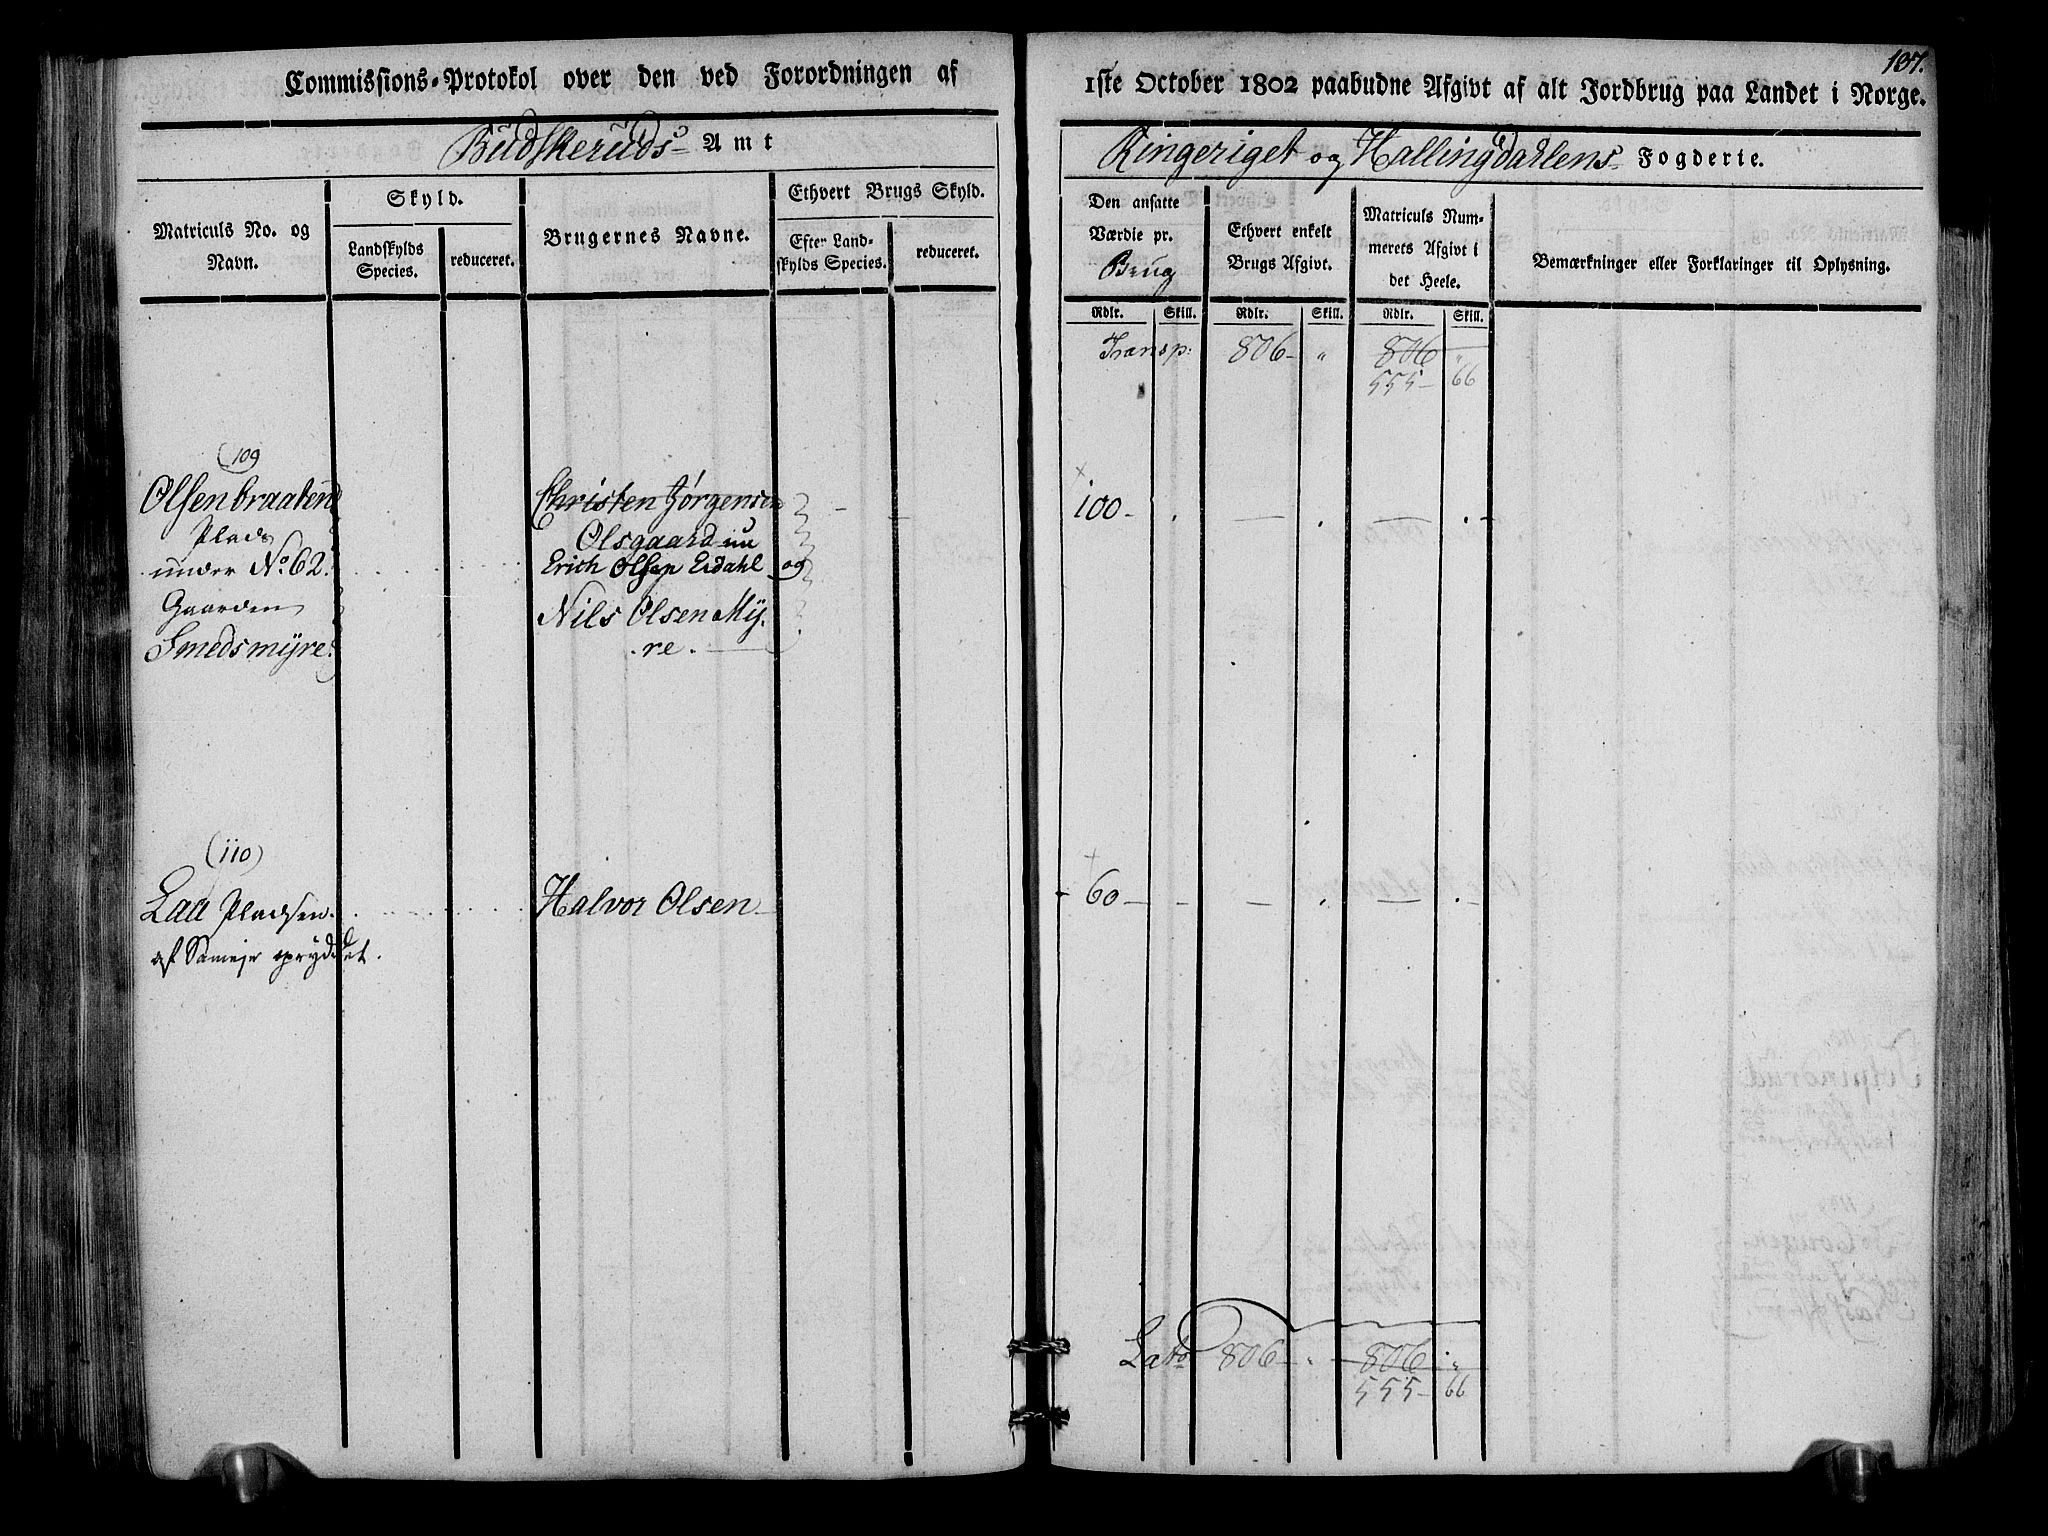 Commissions-Protokol over den ved Forordningen af
Budskeruds Amt
Matriculs No. og Navn.
Skyld.
Landskylds Species.
reduceret.
Brugernes Navne.
Ethvert Brugs Skyld.
Efter Land-
skylds Species.
reduceret.
(109
Olsenbraaten
Plads
under No. 62.
Gaarden
Smedsmyre.
Christen Jørgensen
Olsgaard nu
Erich Olsen Eidahl og
Nils Olsen My.
.re.
(110)
Laa Pladsen.
af Sameje opryddet.
Halvor Olsen
107.
1ste October 1802 paabudne Afgivt af alt Jordbrug paa Landet i Norge.
Ringeriget og Hallingdahlens Fogderie.
Den ansatte
Værdie pr.
Brug
Ethvert enkelt
Brugs Afgivt.
Matriculs Num-
merets Afgivt i
det Heele.
Bemærkninger eller Forklaringer til Oplysning.
Rdlr. Skill. Rdlr. Skill. Rdlr. Skill.
Transp: 806 - " 806 "
555 - 66
100 -
60 -
Lat. 806 - " 806 "
555 - 66